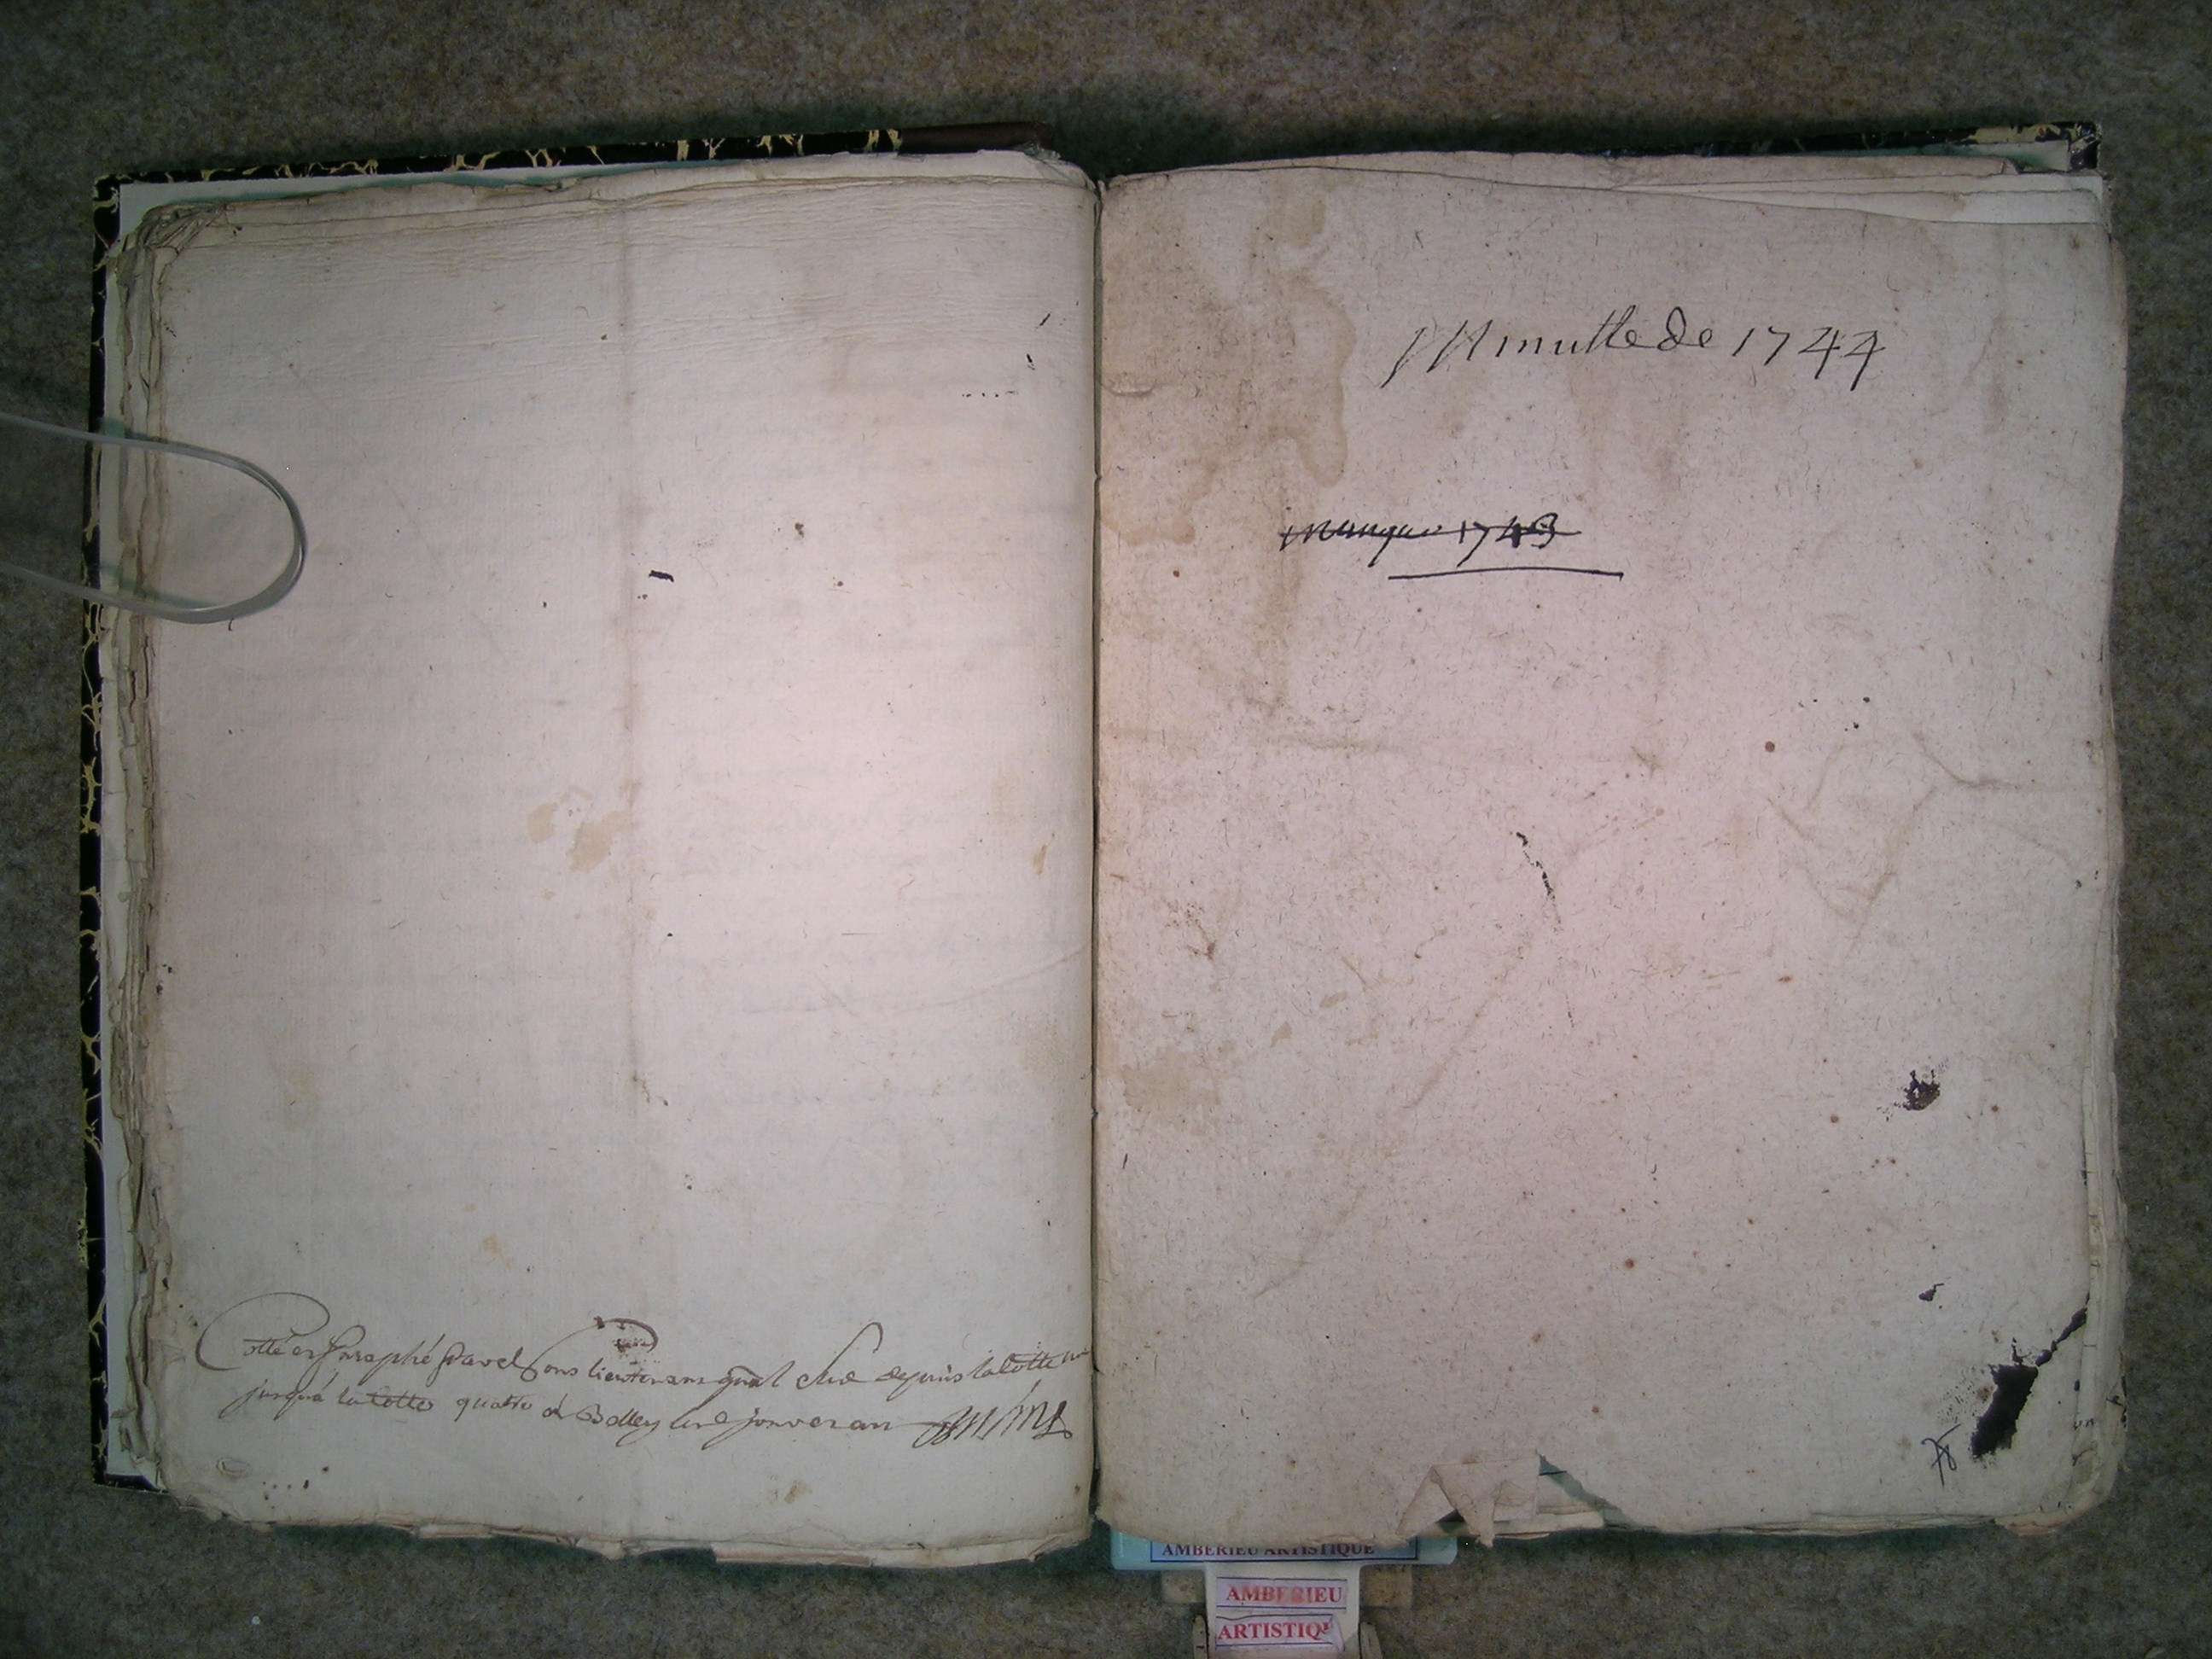 Cotté et paraphé par les sous lieutenant gnal civil depuis la cotte un
jusqu'à la cotte quatre à Belley ce janvier an
Minutte de 1744
manque 1743
AMBERIEU ARTISTIQUE
AMBERIEU
ARTISTIQ